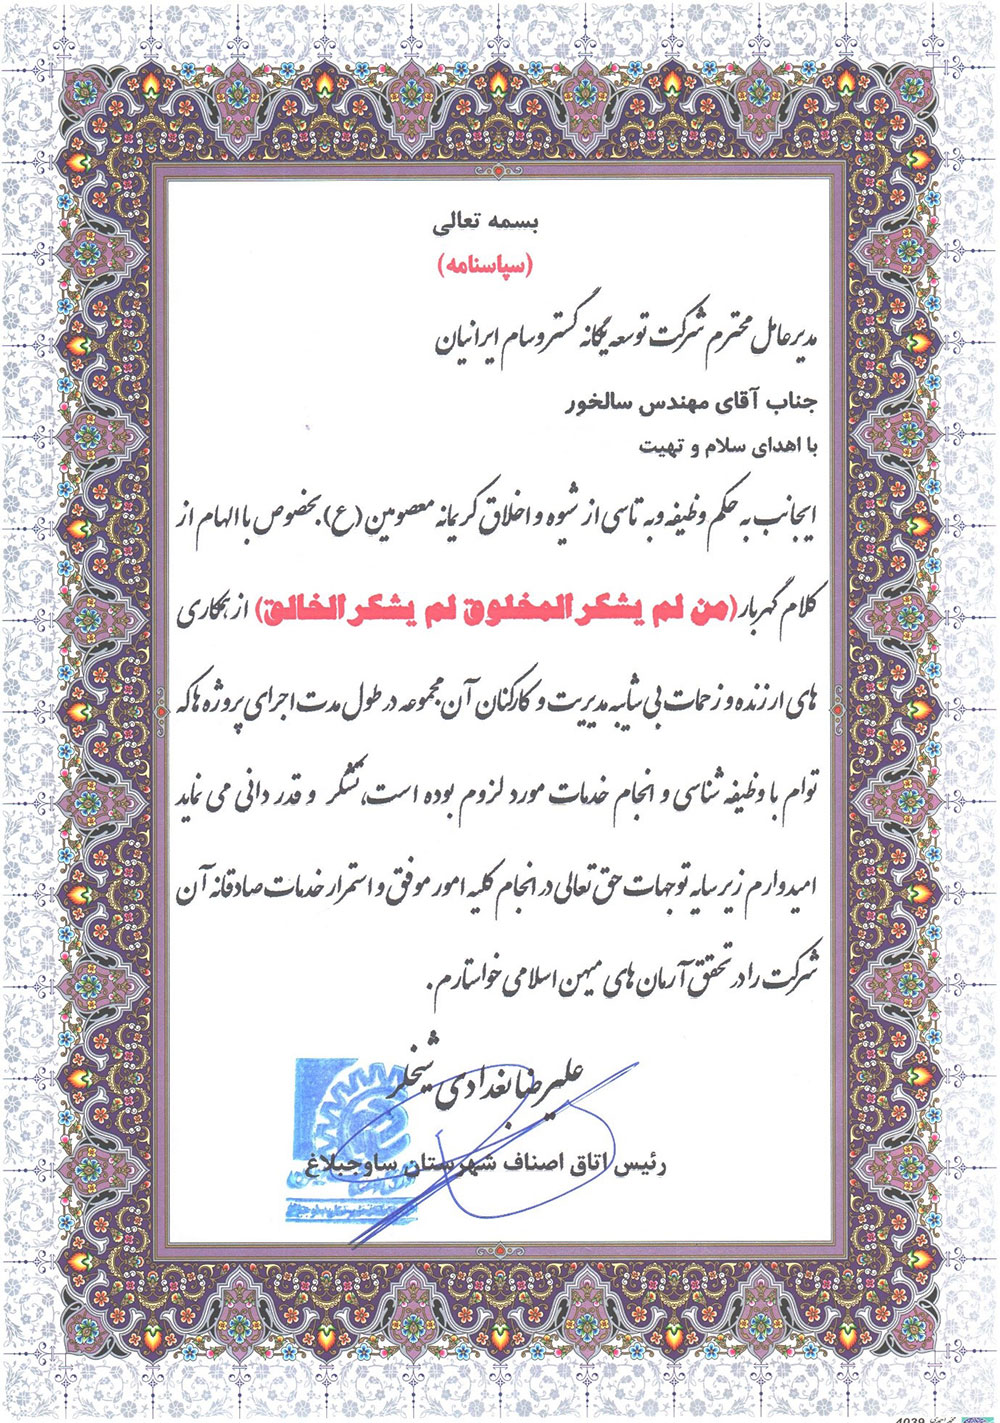 بسمه تعالی
(سپاسنامه)
مدیرعامل محترم شرکت توسعه یگانه گستر وسام ایرانیان
جناب آقای مهندس سالخور
با اهدای سلام و تهیت
اینجانب به حکم وظیفه و به تاسی از شیوه و اخلاق کریمانه معصومین (ع) بخصوص با الهام از
کلام گهربار (من لم یشکر المخلوق لم یشکر الخالق) از همکاری
های ارزنده و زحمات بی شایبه مدیریت و کارکنان آن مجموعه در طول مدت اجرای پروژه ها که
توام با وظیفه شناسی و انجام خدمات مورد لزوم بوده است، تشکر و قدردانی می نماید
امیدوارم زیر سایه توجهات حق تعالی در انجام کلیه امور موفق و استمرار خدمات صادقانه آن
شرکت را در تحقق آرمان های میهن اسلامی خواستارم.
علیرضا بغدادی شیخلر
رئیس اتاق اصناف شهرستان ساوجبلاغ
4039